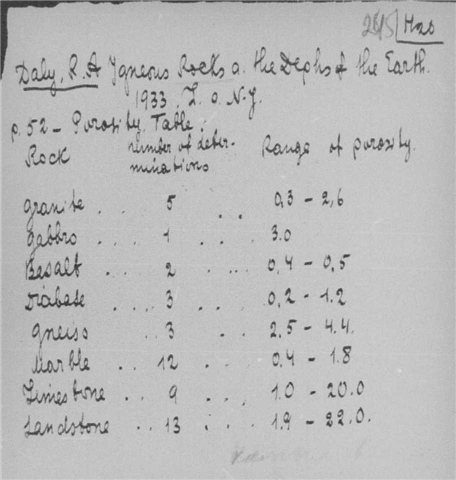 245 Has
Daly, R.A Igneous Rocks a. the Dephs of the Earth.
1933, L. a. N.Y.
p. 52 – Porosity, Table:
Rock number of deter- Range of porosity.
minations
granite .. 5 .. 0,3 – 2,6
gabbro ... 1 ... 3.0
Basalt .. 2 .... 0,4 – 0,5
Diabase .... 3 ... 0,2 – 1.2
gneiss .. 3 ... 2,5 – 4.4.
Marble .. 12 .. 0.4 – 1.8
Limestone .. 9 ... 1.0 – 20.0
Sandstone .. 13 ... 1.9 – 22.0.